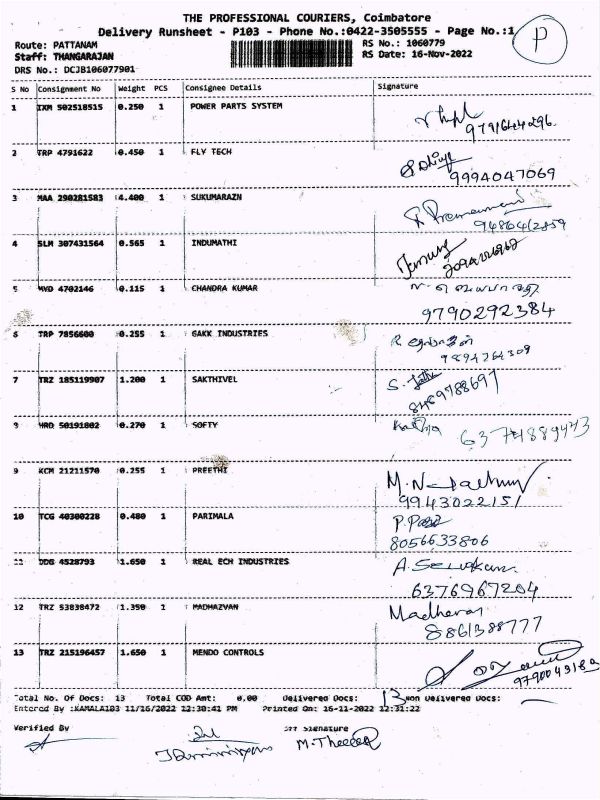 THE PROFESSIONAL COURIERS, Coimbatore
Delivery Runsheet - P103 - Phone No.:0422-3505555 - Page No.:1
P
Route: PATTANAM RS No.: 1060779
Staff: THANGARAJAN RS Date: 16-Nov-2022
DRS No.: DCJB106077901
S No Consignment No Weight PCS Consignee Details Signature
1 IXM 502518515 0.250 1 POWER PARTS SYSTEM
9791644296
2 TRP 4791622 0.450 1 FLY TECH
9994047069
3 MAA 290281583 4.400 1 SUKUMARAZN
9486412859
4 SLM 307431564 0.565 1 INDUMATHI
5 MYD 4702146 0.115 1 CHANDRA KUMAR
9790292384
6 TRP 7856600 0.255 1 GAKK INDUSTRIES
9894764309
7 TRZ 185119907 1.200 1 SAKTHIVEL
8489788697
8 HRD 50191802 0.270 1 SOFTY
6374889473
9 KCM 21211570 0.255 1 PREETHI
9943022151
10 TCG 40300228 0.480 1 PARIMALA
8056633806
11 DDG 4528793 1.650 1 REAL ECH INDUSTRIES
6376967204
12 TRZ 53838472 1.350 1 MADHAZVAN
Madhavan
8861388777
13 TRZ 215196457 1.650 1 MENDO CONTROLS
Total No. Of Docs: 13 Total COD Amt: 0.00 Delivered Docs: 13 Non Delivered Docs:
Entered By :KAMALA103 11/16/2022 12:30:41 PM Printed On: 16-11-2022 12:31:22
Verified By Signature